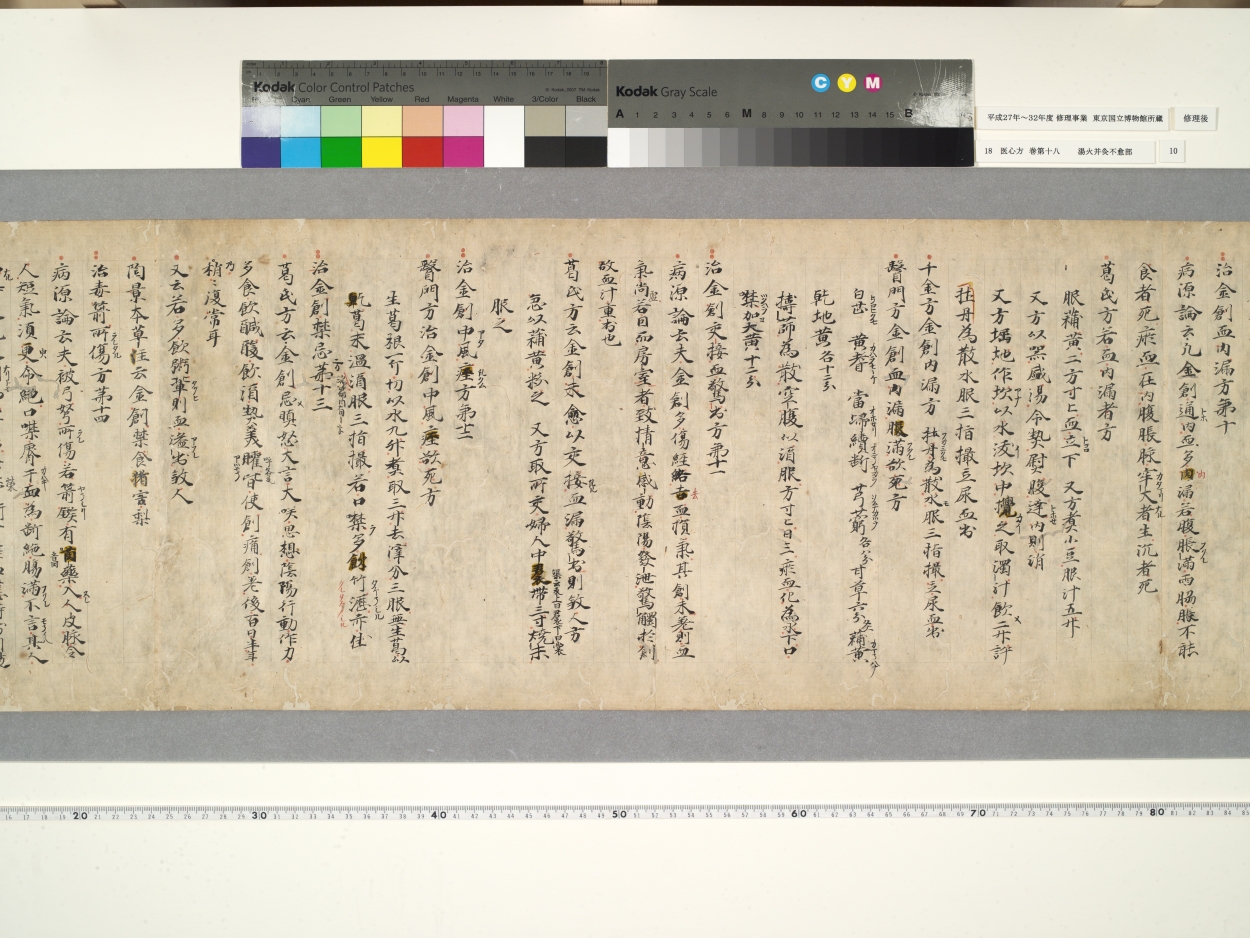 Kodak Color Control Patches
Cyan
Green
Yellow
Red
Magenta
White
3/Color
Black
Kodak Gray Scale
C Y M
A 1 2 3 4 5 6 M 8 9 10 11 12 13 14 15 B
平成27年〜32年度 修理事業 東京国立博物館所蔵
修理後
18 医心方 巻第十八 湯火并灸不愈部
10
治金創血内漏方第十
病源論云凡金創通内血多内漏若腹脹満両脇脹不能
食者死瘀血在内腹脹脉牢大者生沉者死
葛氏方若血内漏者方
服蒲黄二方寸匕血立下 又方煮小豆服汁五升
又方以器盛湯令熱熨腹達内則消
又方堀地作坎以水沃坎中攪之取濁汁飲二升許
牡丹為散水服三指撮立尿血出
千金方金創内漏方 牡丹為散水服三指撮立尿血出
醫門方金創血内漏腹満欲死方
白芷 黄耆 當歸 續断 芎藭各八分 甘草六分 蒲黄
乾地黄各十二分
擣篩為散空腹以酒服方寸匕日三瘀血化為水下口
噤加大黄十二分
治金創交接血驚出方第十一
病源論云夫金創多傷経絡去血損氣其創未差則血
氣尚若因而房室者致情意感動陰陽發泄驚觸於創
故血汁重出也
葛氏方云金創未愈以交接血漏驚出則敎人方
急以蒲黄粉之 又方取所交婦人中裙帯三寸燒末
服之
治金創中風痙方第十二
醫門方治金創中風痙欲死方
生葛根一斤切以水九升煮取三升去滓分三服無生葛以
乾葛末温酒服三指撮若口噤多飲竹瀝亦佳
治金創禁忌第十三
葛氏方云金創忌瞋怒大言大咲思想陰陽行動作力
多食飲醎酸飲酒熱羹臛皆使創痛創差後百日半年
稍々復常耳
又云若多飲粥輩則血溢出敎人
陶景本草注云金創禁食猪害梨
治毒箭所傷方第十四
病源論云夫被弓弩所傷若箭鏃有菌藥入人皮脉令
人短氣須臾命絶口噤脣干血為断絶腸満不言其人
20 30 40 50 60 70 80